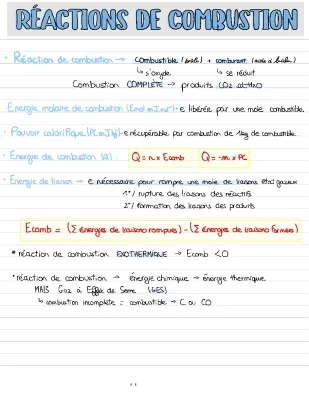 RÉACTIONS DE COMBUSTION
• Réaction de combustion → combustible + comburant
↳ s'oxyde ↳ se réduit
Combustion COMPLÈTE → produits CO2 et H2O
Energie molaire de combustion → e libérée par une mole combustible.
• Pouvoir calorifique → e récupérable par combustion de 1kg de combustible
• Energie de combustion (Q) : Q = n x Ecomb Q = -m x PC
• Energie de liaison → e nécessaire pour rompre une mole de liaisons état gazeux
1°/ rupture des liaisons des réactifs
2°/ formation des liaisons des produits
Ecomb = (Σ énergies de liaisons rompues) - (Σ énergies de liaisons formées)
* réaction de combustion EXOTHERMIQUE → Ecomb < 0
• réaction de combustion → énergie chimique → énergie thermique
MAIS Gaz à Effet de Serre (GES)
↳ combustion incomplète = combustible → C ou CO